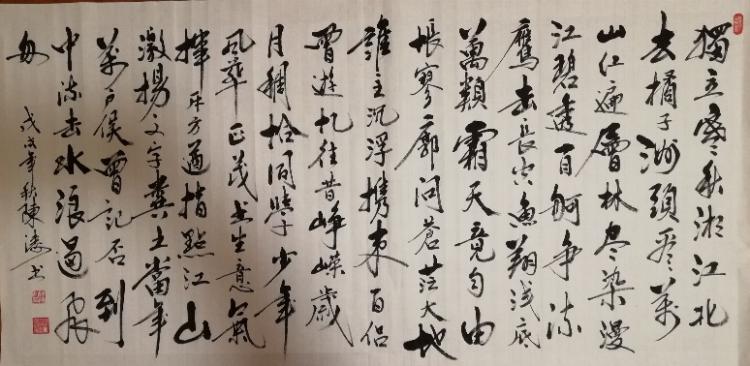 獨立寒秋湘江北
去橘子洲頭看萬
山红遍層林尽染漫
江碧透百舸争流
鹰击長空鱼翔浅底
萬類霜天竞自由
悵寥廓問蒼茫大地
誰主沉浮携来百侣
曾遊忆往昔峥嵘歲
月稠恰同學少年
风華正茂书生意氣
揮斥方遒指點江山
激揚文字糞土當年
萬户侯曾記否到
中流击水浪遏飛
舟
戊戌年秋陳书